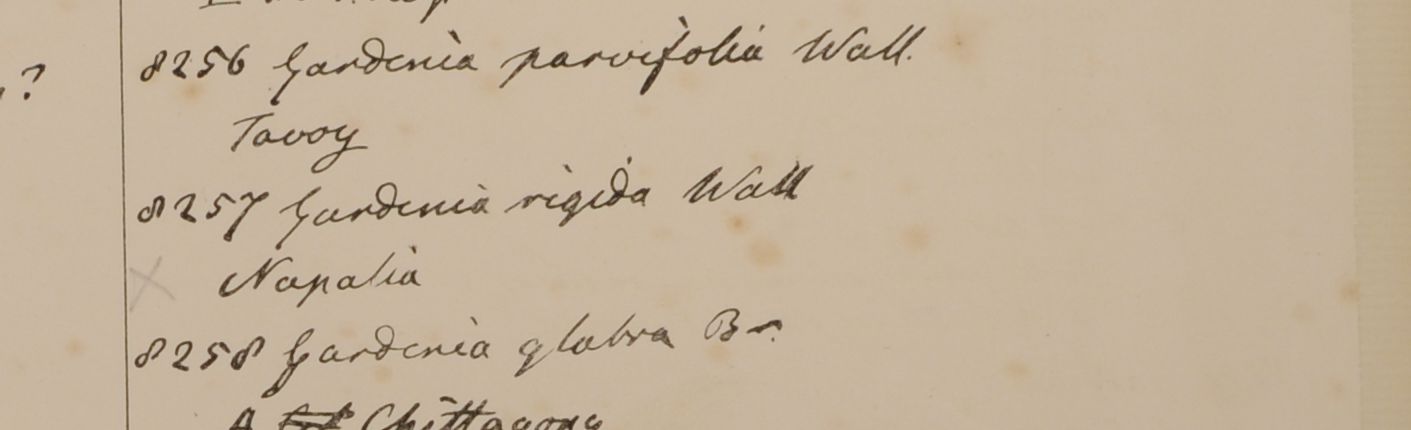 ?
8256 Gardenia parvifolia Wall.
Tavoy
8257 Gardenia rigida Wall
Napalia
8258 Gardenia glabra Br.
A Chittagong